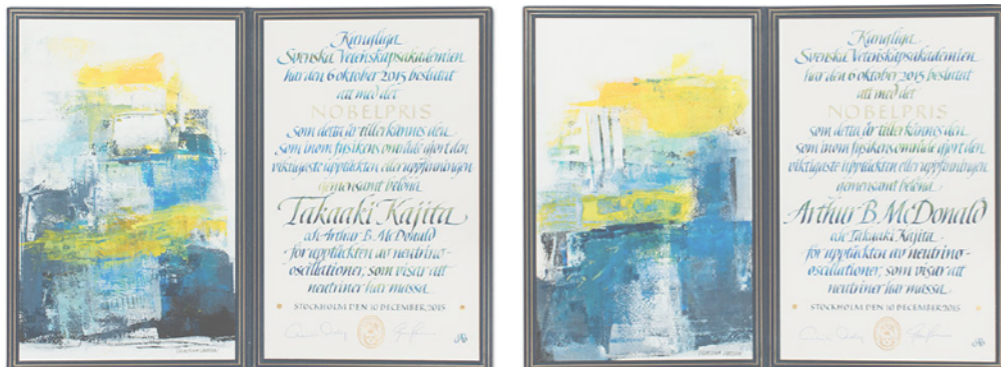 Kungliga
Svenska Vetenskapsakademien
har den 6 oktober 2015 beslutat
att med det
NOBELPRIS
som detta år tillerkännes den
som inom fysikens område gjort den
viktigaste upptäckten eller uppfinningen
gemensamt belöna
Takaaki Kajita
och Arthur B. McDonald
för upptäckten av neutrino-
oscillationer, som visar att
neutriner har massa.
STOCKHOLM DEN 10 DECEMBER 2015
Kungliga
Svenska Vetenskapsakademien
har den 6 oktober 2015 beslutat
att med det
NOBELPRIS
som detta år tillerkännes den
som inom fysikens område gjort den
viktigaste upptäckten eller uppfinningen
gemensamt belöna
Arthur B. McDonald
och Takaaki Kajita
för upptäckten av neutrino-
oscillationer, som visar att
neutriner har massa.
STOCKHOLM DEN 10 DECEMBER 2015